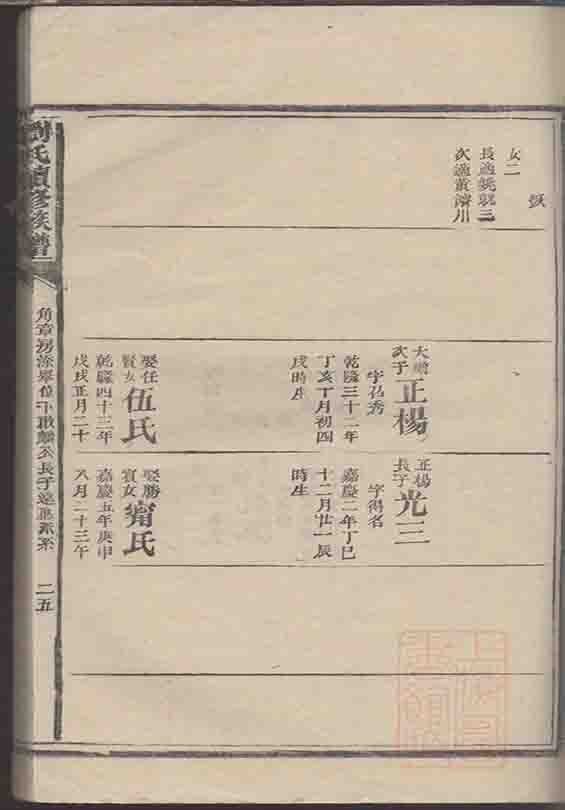 女二
長適姚覲三
次適黃濟川
大贈
次子
正楊
字召秀
乾隆三十二年
丁亥丁月初四
戌時生
娶任
賢女
伍氏
乾隆四十三年
戊戌正月二十
正楊
長子
光三
字得名
嘉慶二年丁巳
十二月廿一辰
時生
娶勝
賓女
甯氏
嘉慶五年庚申
八月二十三午
氏續修族譜
二五